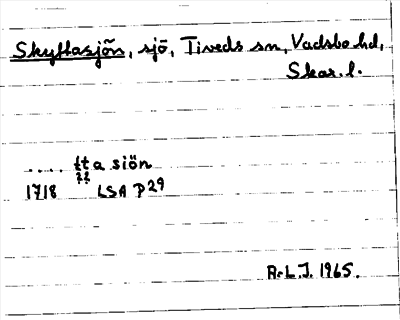 Skyttasjön, sjö, Tiveds sn, Vadsbo hd,
Skar. l.
.... tta siön
??
1718 LSA P29
A.L.J. 1965.